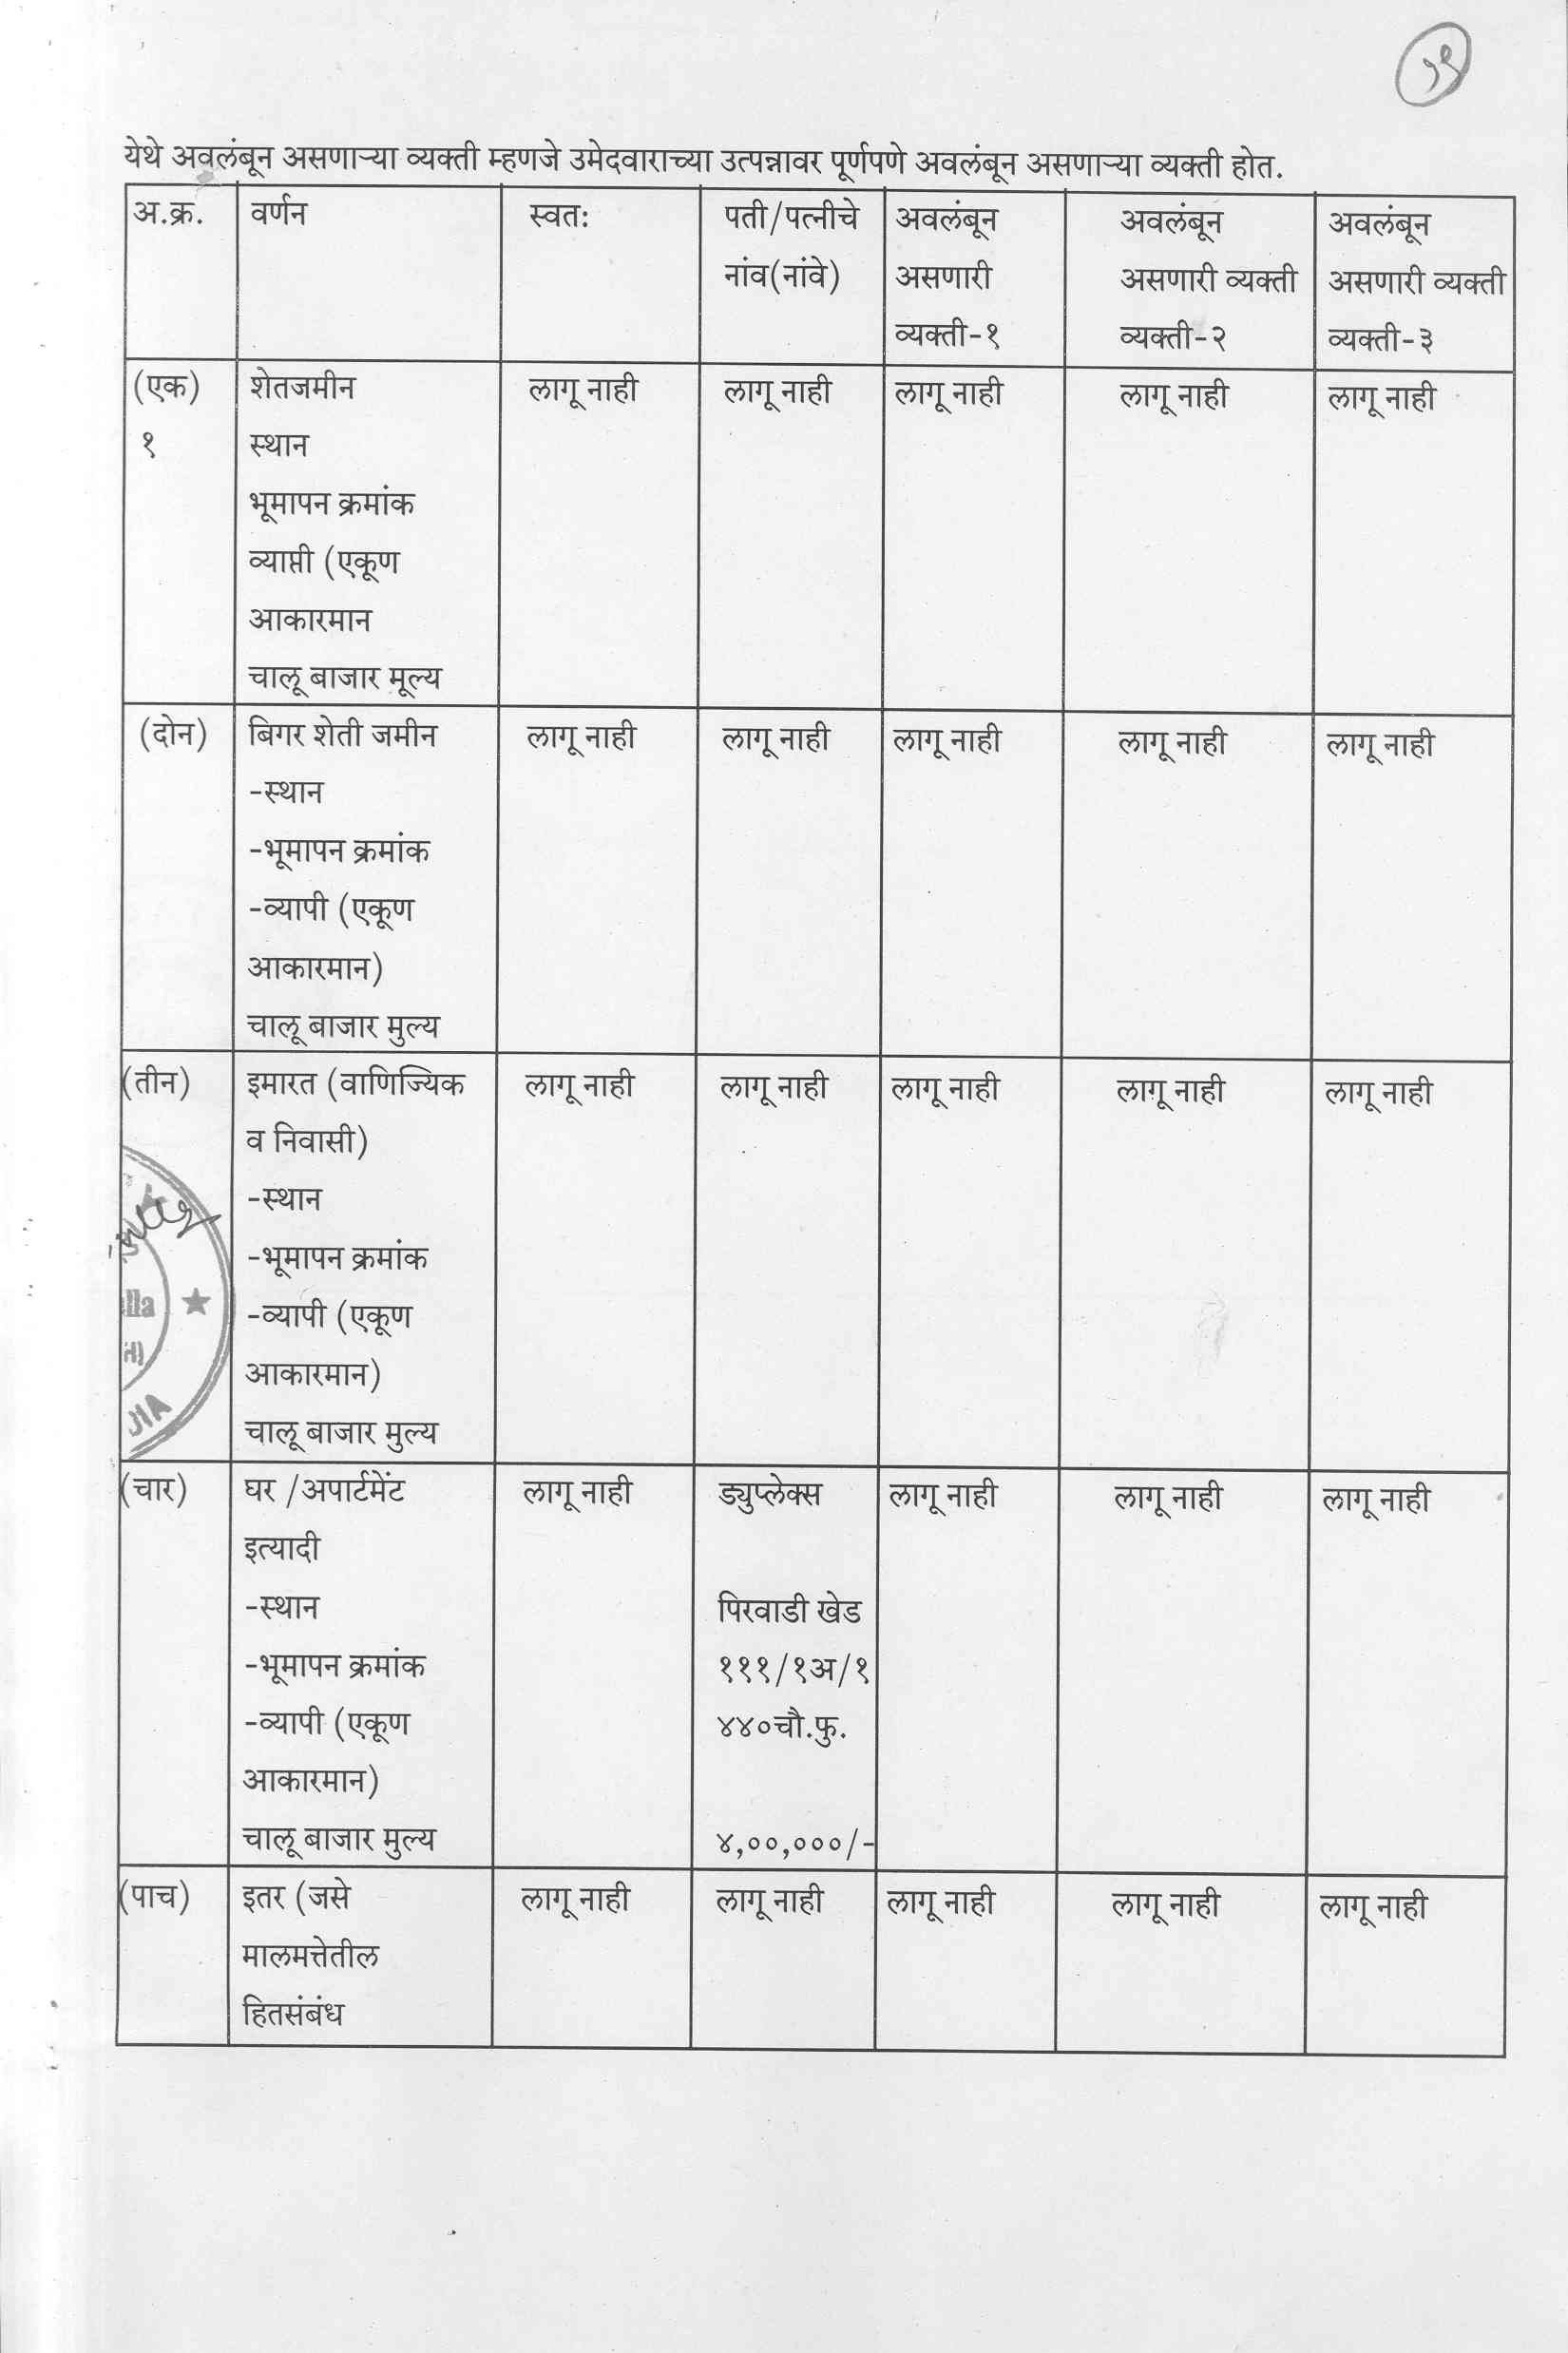 येथे अवलंबून असणाऱ्या व्यक्ती म्हणजे उमेदवाराच्या उत्पन्नावर पूर्णपणे अवलंबून असणाऱ्या व्यक्ती होत.
अ.क्र. वर्णन स्वतः पती/पत्नीचे अवलंबून अवलंबून अवलंबून
नांव(नांवे) असणारी असणारी व्यक्ती असणारी व्यक्ती
व्यक्ती-१ व्यक्ती-२ व्यक्ती-३
(एक) शेतजमीन लागू नाही लागू नाही लागू नाही लागू नाही लागू नाही
१ स्थान
भूमापन क्रमांक
व्याप्ती (एकूण
आकारमान
चालू बाजार मूल्य
(दोन) बिगर शेती जमीन लागू नाही लागू नाही लागू नाही लागू नाही लागू नाही
-स्थान
-भूमापन क्रमांक
-व्यापी (एकूण
आकारमान)
चालू बाजार मुल्य
(तीन) इमारत (वाणिज्यिक लागू नाही लागू नाही लागू नाही लागू नाही लागू नाही
व निवासी)
-स्थान
-भूमापन क्रमांक
-व्यापी (एकूण
आकारमान)
चालू बाजार मुल्य
(चार) घर /अपार्टमेंट लागू नाही ड्युप्लेक्स लागू नाही लागू नाही लागू नाही
इत्यादी
-स्थान पिरवाडी खेड
-भूमापन क्रमांक १११/१अ/१
-व्यापी (एकूण ४४०चौ.फु.
आकारमान)
चालू बाजार मुल्य ४,००,०००/-
(पाच) इतर (जसे लागू नाही लागू नाही लागू नाही लागू नाही लागू नाही
मालमत्तेतील
हितसंबंध